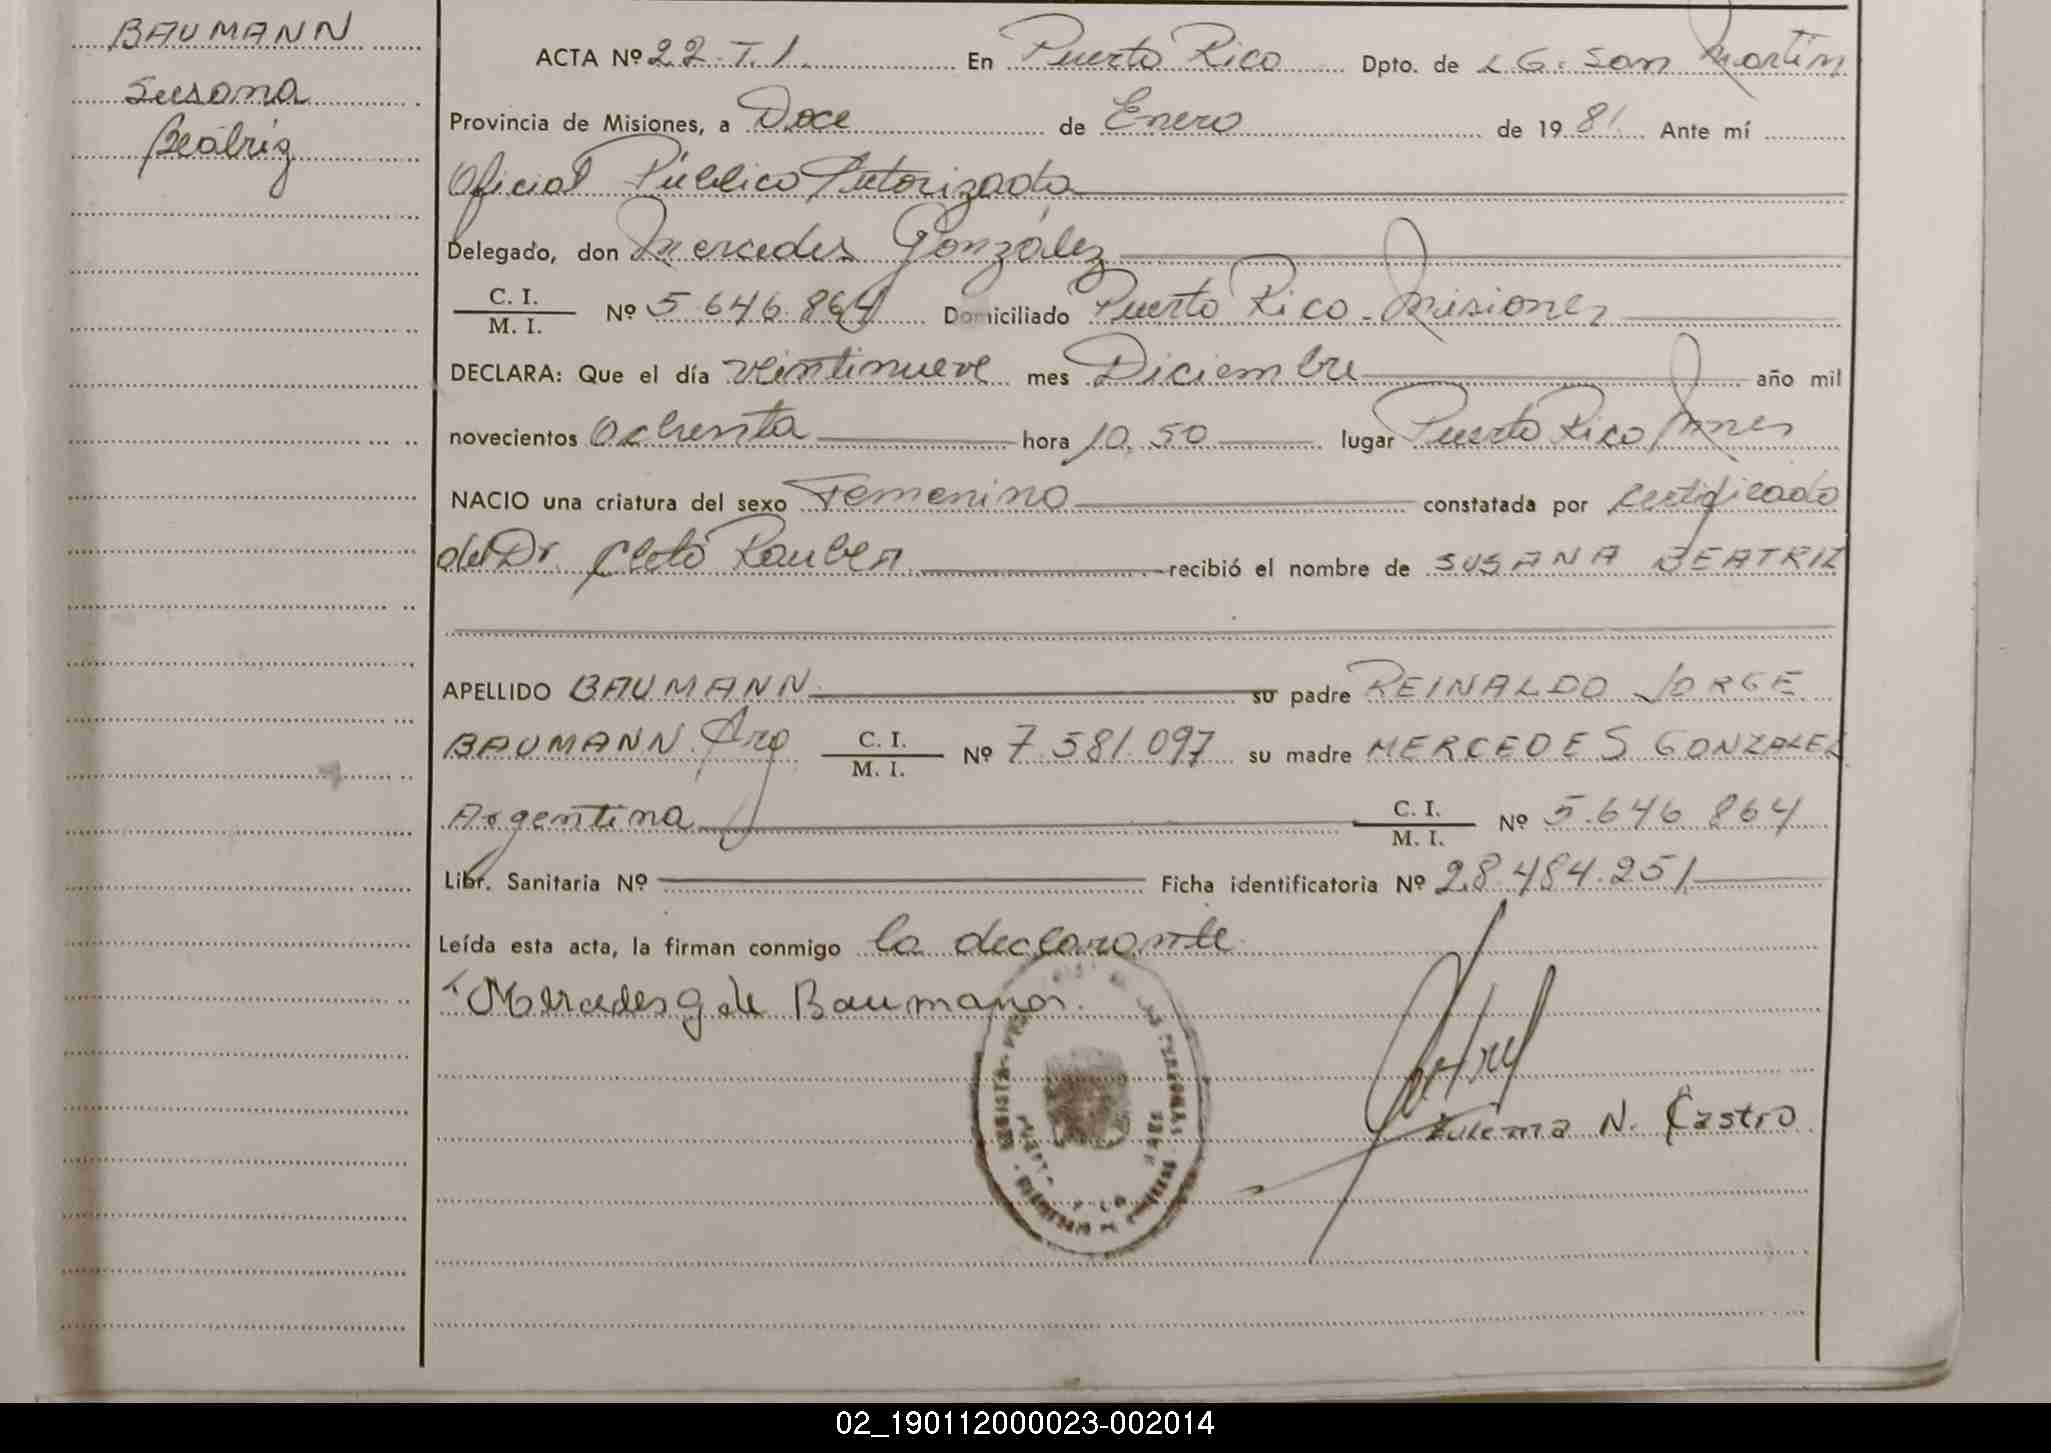 BAUMANN
Susana
Beatriz
ACTA Nº 22-T.1. En Puerto Rico Dpto. de L.G. San Martín
Provincia de Misiones, a Doce de Enero de 1981. Ante mí
Oficial Público Autorizada
Delegado, don Mercedes González
C. I.
M. I. Nº 5.646.864 Domiciliado Puerto Rico - Misiones
DECLARA: Que el día veintinueve mes Diciembre año mil
novecientos Ochenta hora 10,50 lugar Puerto Rico Mnes
NACIO una criatura del sexo Femenino constatada por certificado
del Dr. Cleto Rauber recibió el nombre de SUSANA BEATRIZ
APELLIDO BAUMANN su padre REINALDO JORGE
BAUMANN. Arg C. I.
M. I. Nº 7.581.097 su madre MERCEDES GONZALEZ
Argentina C. I.
M. I. Nº 5.646.864
Libr. Sanitaria Nº Ficha identificatoria Nº 28.484.251
Leída esta acta, la firman conmigo la declarante
Mercedes G de Baumann.
Zulema N. Castro
02_190112000023-002014